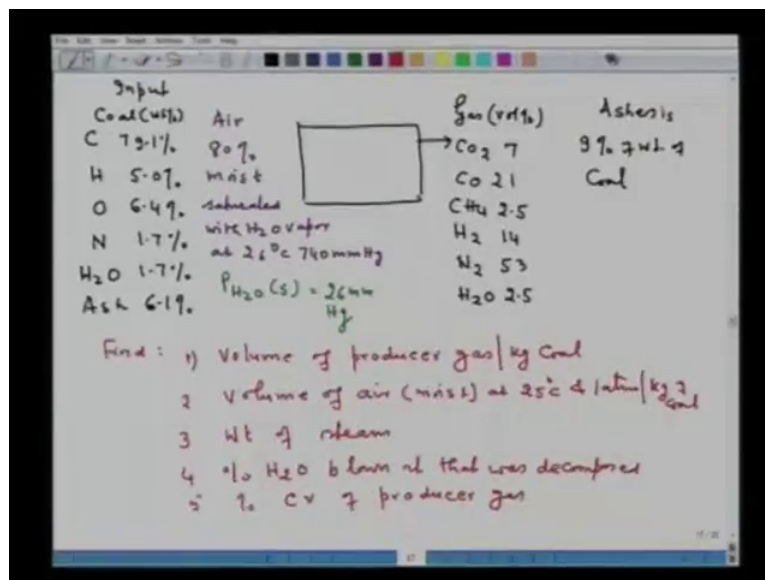 Input
Coal (wt%)
C 79.1%
H 5.0%
O 6.4%
N 1.7%
H2O 1.7%
Ash 6.1%
Air
80%
moist
saturated
with H2O vapor
at 26°C 740mmHg
PH2O(s) = 26mm
Hg
Gas (vol%)
CO2 7
CO 21
CH4 2.5
H2 14
N2 53
H2O 2.5
Ash is
9% of wt of
Coal
Find: 1) Volume of producer gas/kg Coal
2 Volume of air (moist) at 25°C & 1atm/kg of coal
3 Wt of steam
4 % H2O blown at that was decomposed
5 % CV of producer gas
17